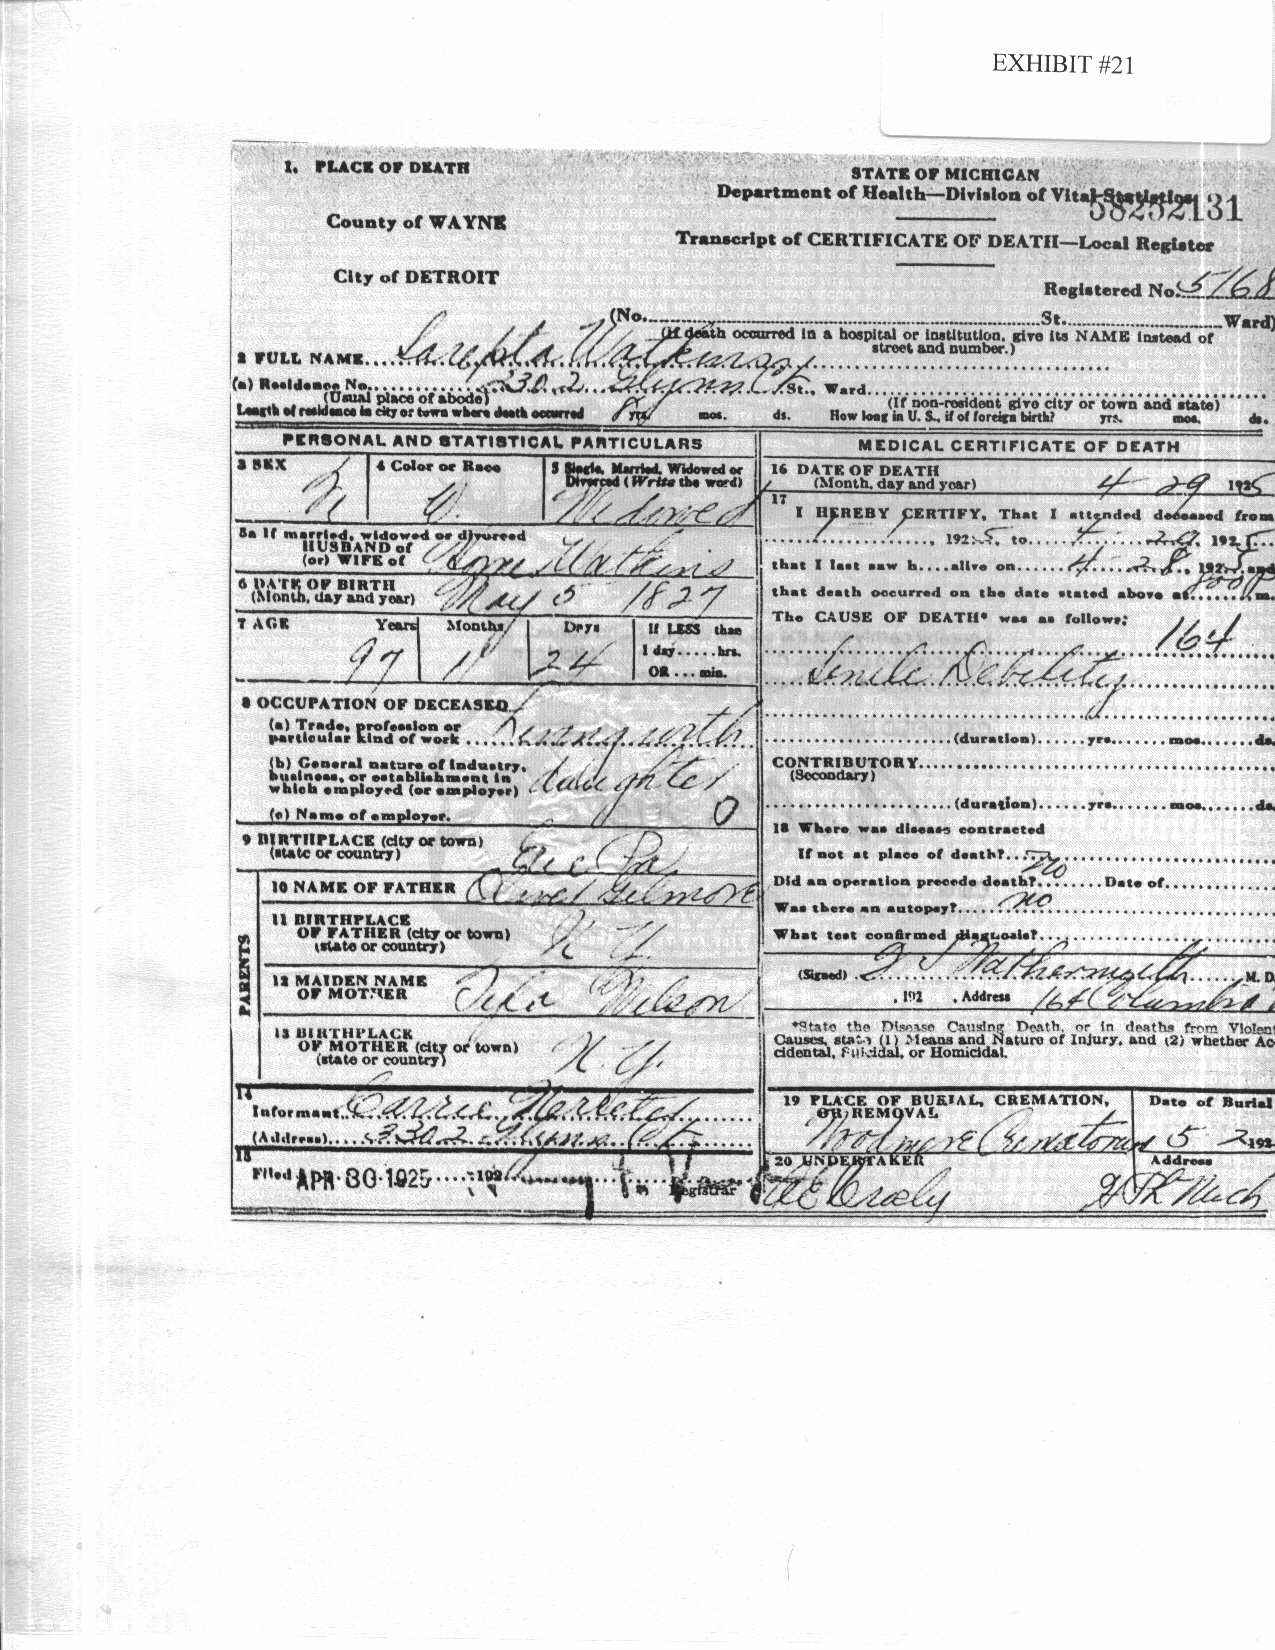 EXHIBIT #21
1. PLACE OF DEATH
County of WAYNE
City of DETROIT
STATE OF MICHIGAN
Department of Health—Division of Vital Statistics
58252131
Transcript of CERTIFICATE OF DEATH—Local Register
Registered No. 5168
(No. St. Ward)
(If death occurred in a hospital or institution, give its NAME instead of street and number.)
2 FULL NAME Watkins
(a) Residence No. 3302 Glynn Ct St., Ward
(Usual place of abode) (If non-resident give city or town and state)
Length of residence in city or town where death occurred 8 yrs. mos. ds. How long in U. S., if of foreign birth? yrs. mos. ds.
PERSONAL AND STATISTICAL PARTICULARS
3 SEX
4 Color or Race W.
5 Single, Married, Widowed or Divorced (Write the word) Widowed
5a If married, widowed or divorced
HUSBAND of
(or) WIFE of Watkins
6 DATE OF BIRTH
(Month, day and year) May 5 1827
7 AGE Years Months Days If LESS than
1 day.....hrs.
OR ... min.
97 11 24
8 OCCUPATION OF DECEASED
(a) Trade, profession or
particular kind of work Living with
(b) General nature of industry,
business, or establishment in
which employed (or employer) daughter
(c) Name of employer. 0
9 BIRTHPLACE (city or town)
(state or country) Erie Pa.
PARENTS
10 NAME OF FATHER Oliver Gilmore
11 BIRTHPLACE
OF FATHER (city or town)
(state or country) N Y.
12 MAIDEN NAME
OF MOTHER Wilson
13 BIRTHPLACE
OF MOTHER (city or town)
(state or country) N. Y.
14
Informant Carrie
(Address) 3302 Glynn Ct
15
Filed APR 30 1925 192
Registrar
MEDICAL CERTIFICATE OF DEATH
16 DATE OF DEATH
(Month, day and year) 4 29 1925
17
I HEREBY CERTIFY, That I attended deceased from
192 5, to 4 29, 192 5
that I last saw h....alive on 4 28, 192 5, and
that death occurred on the date stated above at 800 P m.
The CAUSE OF DEATH* was as follows:
164
Senile Debility
(duration) yrs. mos. ds.
CONTRIBUTORY
(Secondary)
(duration) yrs. mos. ds.
18 Where was disease contracted
If not at place of death?
Did an operation precede death? no Date of
Was there an autopsy? no
What test confirmed diagnosis?
(Signed) M. D.
, 192 , Address 164 Columbia
*State the Disease Causing Death, or in deaths from Violent
Causes, state (1) Means and Nature of Injury, and (2) whether Ac-
cidental, Suicidal, or Homicidal.
19 PLACE OF BURIAL, CREMATION,
OR REMOVAL
Woodmere Crematorium
Date of Burial
5 2 192
20 UNDERTAKER
Address